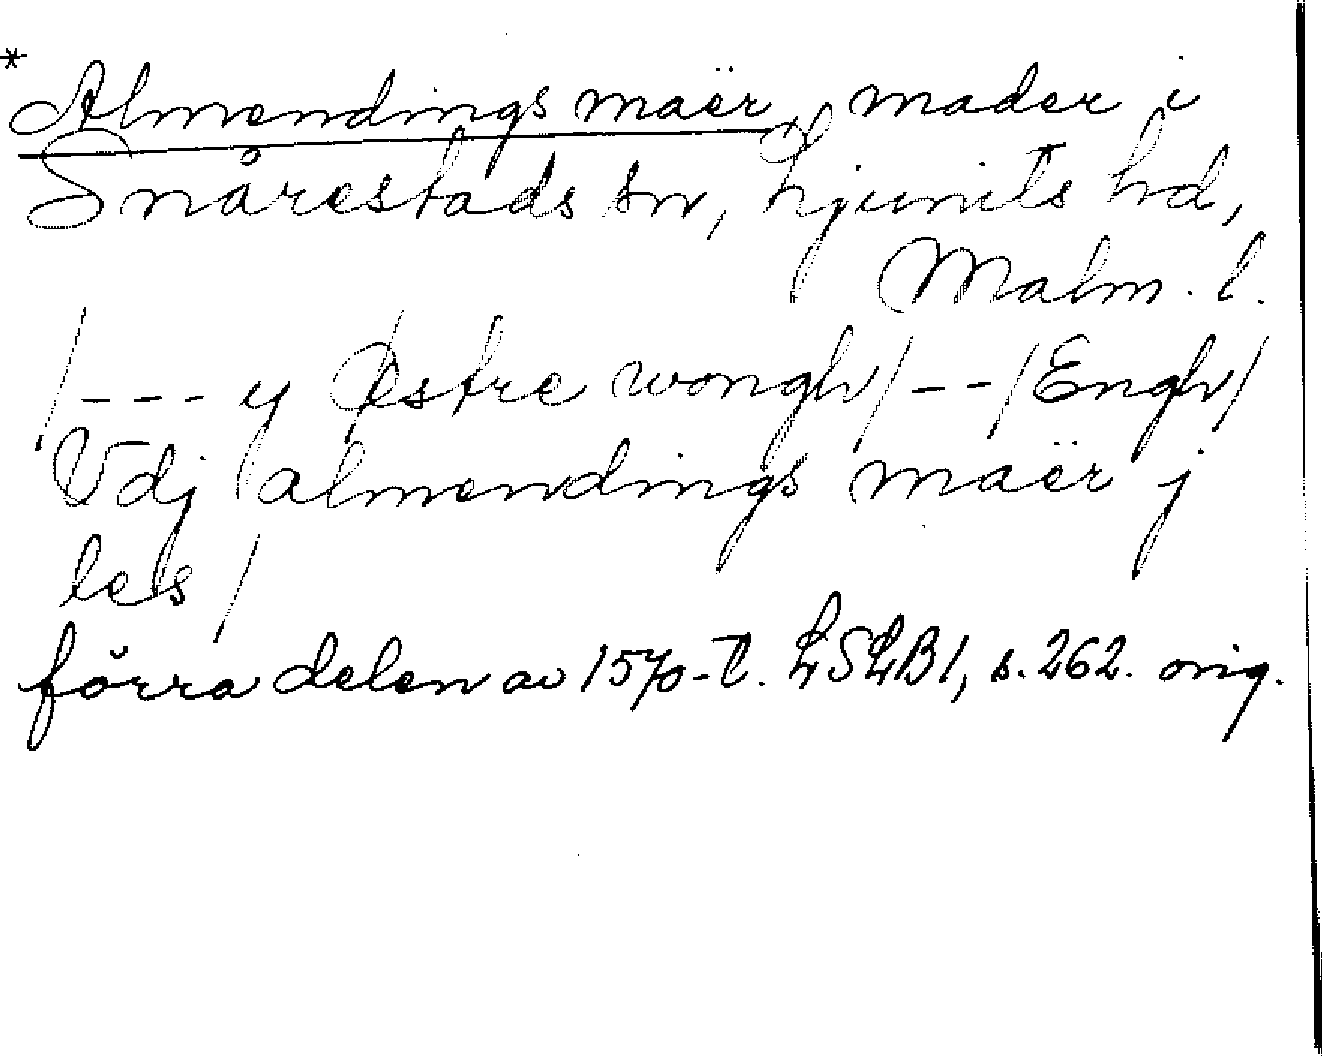 * Almendings maër, mader i
Snårestads sn, Ljunits hd,
Malm. l.
/--- y Østre wongh/--/Engh/
Vdj almendings maër j
les/
förra delen av 1570-t. LSLB1, s. 262. orig.